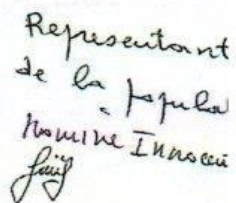 Representant
de la popula
nomine Innocen